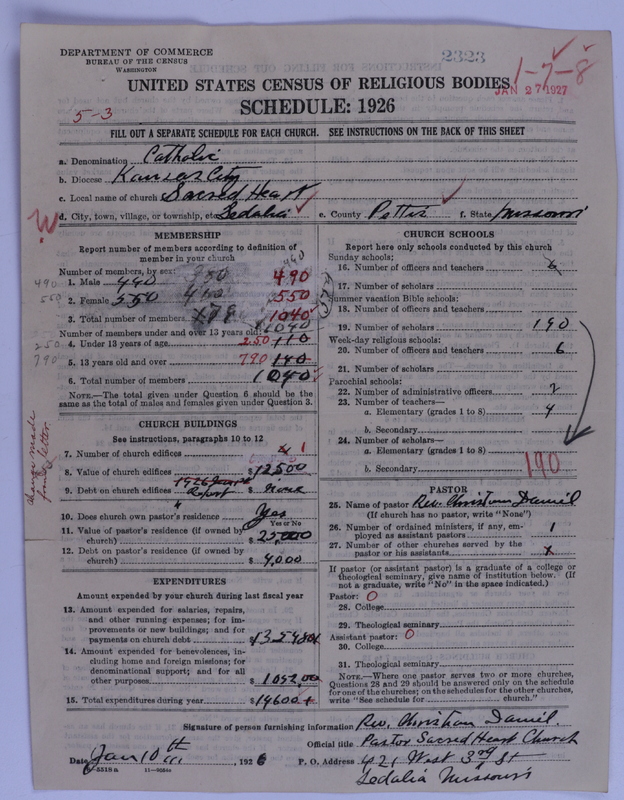 DEPARTMENT OF COMMERCE
BUREAU OF THE CENSUS
WASHINGTON
2323
1-7-8
JAN 27 1927
UNITED STATES CENSUS OF RELIGIOUS BODIES
SCHEDULE: 1926
5-3
FILL OUT A SEPARATE SCHEDULE FOR EACH CHURCH. SEE INSTRUCTIONS ON THE BACK OF THIS SHEET
a. Denomination Catholic
b. Diocese Kansas City
c. Local name of church Sacred Heart
d. City, town, village, or township, etc. Sedalia e. County Pettis f. State Missouri
MEMBERSHIP
Report number of members according to definition of
member in your church
Number of members, by sex:
1. Male 490
2. Female 550
3. Total number of members 1040
Number of members under and over 13 years old:
4. Under 13 years of age 250 110
5. 13 years old and over 790 140
6. Total number of members 1040
NOTE.—The total given under Question 6 should be
same as the total of males and females given under Question 3.
490
550
250
790
change made
from letter.
CHURCH BUILDINGS
See instructions, paragraphs 10 to 12
7. Number of church edifices 1
8. Value of church edifices $ 12500
1926 Report
9. Debt on church edifices $ none
10. Does church own pastor's residence Yes
Yes or No
11. Value of pastor's residence (if owned by
church) $ 25,000
12. Debt on pastor's residence (if owned by
church) $ 4,000
EXPENDITURES
Amount expended by your church during last fiscal year
13. Amount expended for salaries, repairs,
and other running expenses; for im-
provements or new buildings; and for
payments on church debt $
14. Amount expended for benevolences, in-
cluding home and foreign missions; for
denominational support; and for all
other purposes $ 1052.00
15. Total expenditures during year $ 14600
CHURCH SCHOOLS
Report here only schools conducted by this church
Sunday schools:
16. Number of officers and teachers 6
17. Number of scholars
Summer vacation Bible schools:
18. Number of officers and teachers
19. Number of scholars 190
Week-day religious schools:
20. Number of officers and teachers 6
21. Number of scholars
Parochial schools:
22. Number of administrative officers 2
23. Number of teachers—
a. Elementary (grades 1 to 8) 4
b. Secondary
24. Number of scholars—
a. Elementary (grades 1 to 8) 190
b. Secondary
PASTOR
25. Name of pastor Rev. Christian Daniel
(If church has no pastor, write "None")
26. Number of ordained ministers, if any, em-
ployed as assistant pastors 1
27. Number of other churches served by the
pastor or his assistants x
If pastor (or assistant pastor) is a graduate of a college or
theological seminary, give name of institution below. (If
not a graduate, write "No" in the space indicated.)
Pastor: 0
28. College
29. Theological seminary
Assistant pastor: 0
30. College
31. Theological seminary
NOTE.—Where one pastor serves two or more churches,
Questions 28 and 29 should be answered only on the schedule
for one of the churches; on the schedules for the other churches,
write "See schedule for church."
Signature of person furnishing information Rev. Christian Daniel.
Official title Pastor Sacred Heart Church
Date Jan 10th, 1926 P. O. Address 421 West 3rd St
Sedalia Missouri
11—9024a